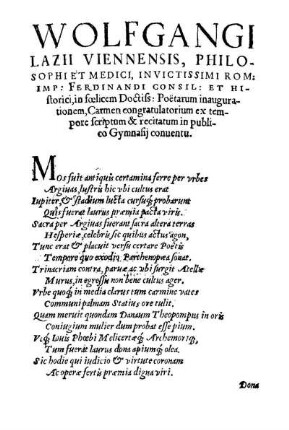 WOLFGANGI
LAZII VIENNENSIS, PHILO-
SOPHI ET MEDICI, INVICTISSIMI ROM:
IMP: FERDINANDI CONSIL: ET HI-
storici, in fœlicem Doctiss: Poëtarum inaugura-
tionem, Carmen congratulatorium ex tem-
pore scriptum & recitatum in publi-
co Gymnasij conuentu.
Mos fuit antiquis certamina ferre per vrbes
Argiuas, lustris hic vbi cultus erat
Iupiter, & stadium lucta cursuq; probarunt
Quis fuerat laurus præmia pacta viris.
Sacra per Argiuas fuerant sacra altera terras
Hesperiæ, celebris sic quibus actus agon,
Tunc erat & placuit versu certare Poëtis
Tempore quo exodia Parthenopæa sonat.
Trinacriam contra, paruæ ac vbi surgit Atellæ
Murus, in egressu non bene cultus ager.
Vrbe quoq; in media clarus tum carmine vates
Communi palmam Statius ore tulit.
Quam meruit quondam Danaum Theopompus in oris
Coniugium mulier dum probat esse pium.
Vtq; Iouis Phœbi Melicertæq; Archemoriq;
Tum fuerat laurus dona apiumq; olea.
Sic hodie qui iudicio & virtute coronam
Ac operæ fertis præmia digna viri.
Dona